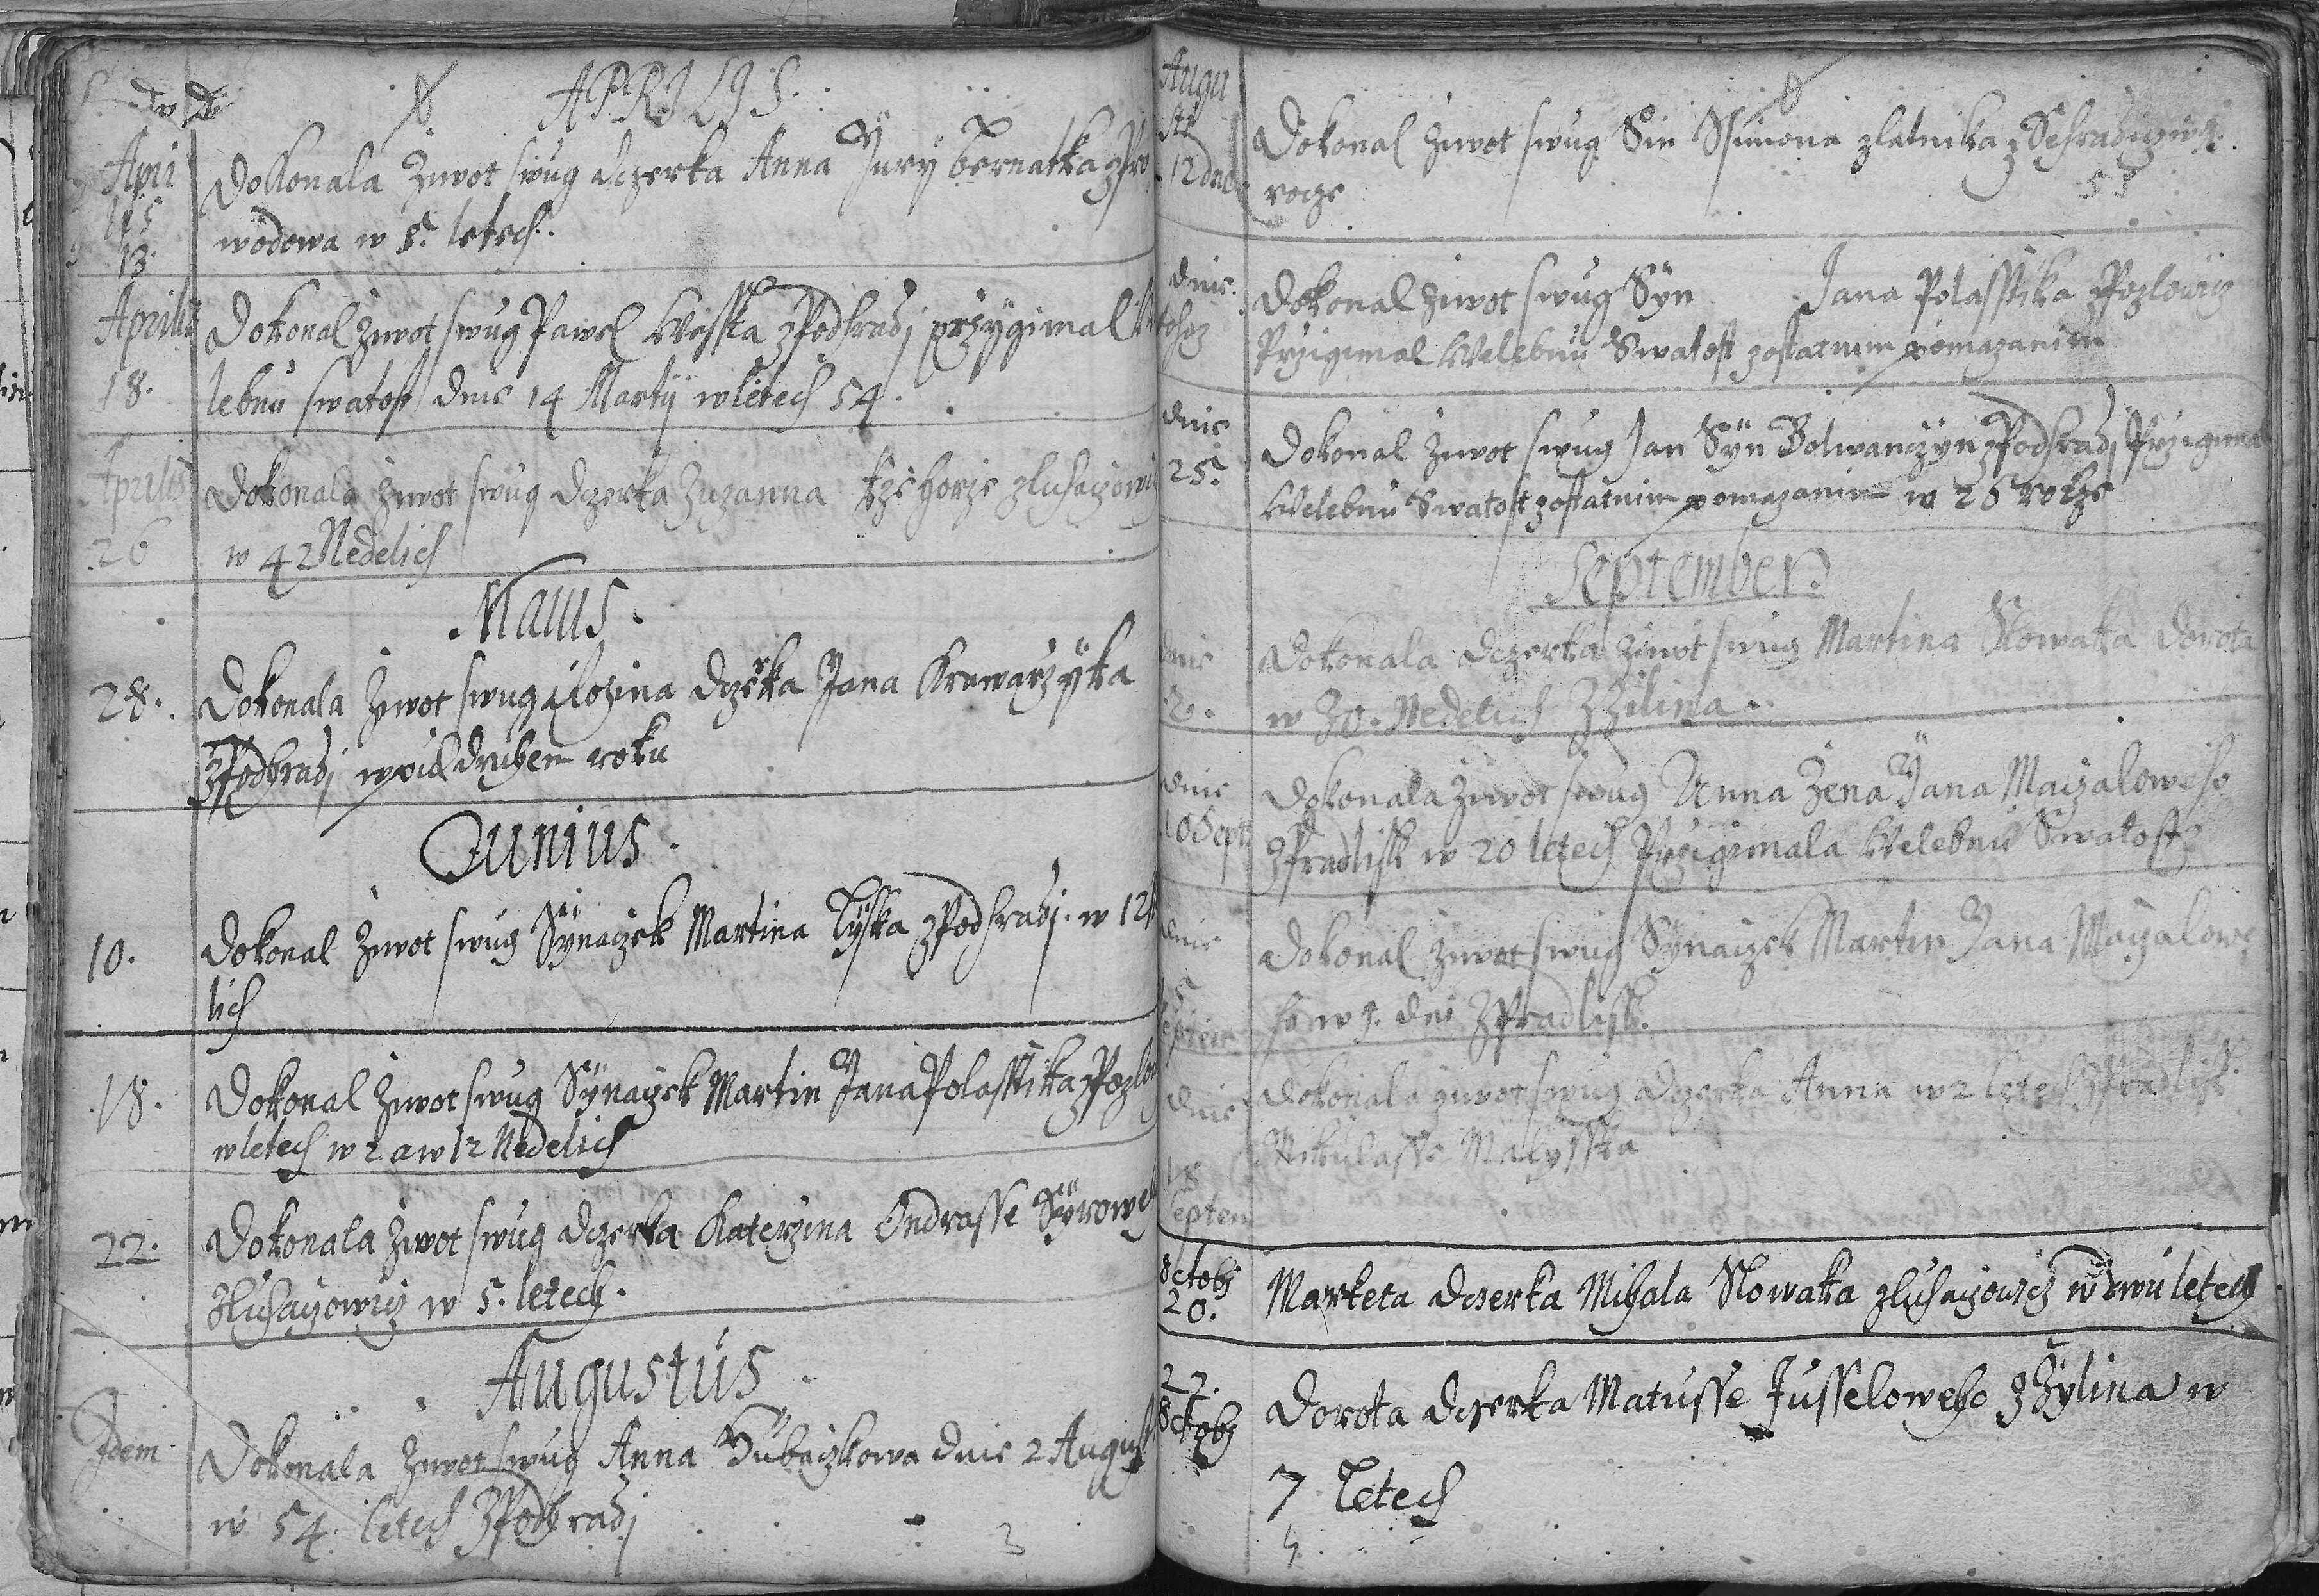 APRILIS
Apri
lis
13.
Dokonala Ziwot swug dczerka Anna Jury Bernatka z Pro
wodowa w 5. letech.
Aprilis
18.
Dokonal Ziwot swug Pawel Wesska z Podhradj przygimal We
lebnu swatost dnie 14 Martij w letech 54.
Aprilis
26
dokonala Ziwot swug dczerka Zuzanna Rzehorze z Luhaczowicz
w 42 Nedelich
Maius.
28.
Dokonala Zywot swug Rozina dczerka Jana Krawarzyka
z Podhradj w pul druhem roku
Junius.
10.
Dokonal Ziwot swug Synaczek Martina Tyska z Podhradj. w 12
lich
18.
Dokonal Ziwot swug Synaczek Martin Jana Polasstika z Pozlo
w letech w 2 a w 12 Nedelich
22.
Dokonala Ziwot swug dczerka Katerzina Ondrasse Syrowe
z Luhaczowicz w 5. letech.
Augustus
Idem
Dokonala Ziwot swug Anna Hubaczkowa dnie 2 August
w 54. letech z Podhradj
Augu
sti
12 dne
Dokonal Ziwot swug Sin Ssimona zlatnika z Sehradicz w
rocze
dnie
tehoz
Dokonal Ziwot swug Syn Jana Polasstika z Pozlowicz
Przigimal Welebnu Swatost z ostatnim pomazanim
dnie
25.
Dokonal Ziwot swug Jan Syn Bolwanczyn z Podhradj Przigima
Welebnu Swatost z ostatnim pomazanim w 26 rocze
September
dnie
2.
Dokonala dczerka Ziwot swug Martina Nowaka Dorota
w 30. Nedelich Z Zilina.
dnie
10 Sept
Dokonala Ziwot swug Anna Zena Jana Maczaloweho
z Pradlisk w 20 letech Przigimala Welebnu Swatost
dnie
Septem
Dokonal Ziwot swug Synaczek Martin Jana Maczalowe
ho w 9. dni z Pradlisk.
dnie
18
Septem
Dokonala ziwot swug dczerka Anna w 2 letech z Pradlisk
Mikulasse Malysska
8ctobj
20.
Marketa dczerka Mihala Nowaka z Luhaczowicz w dwu letech
27.
8ctobj
Dorota dczerka Matusse Jusseloweho z Zylina w
7 letech